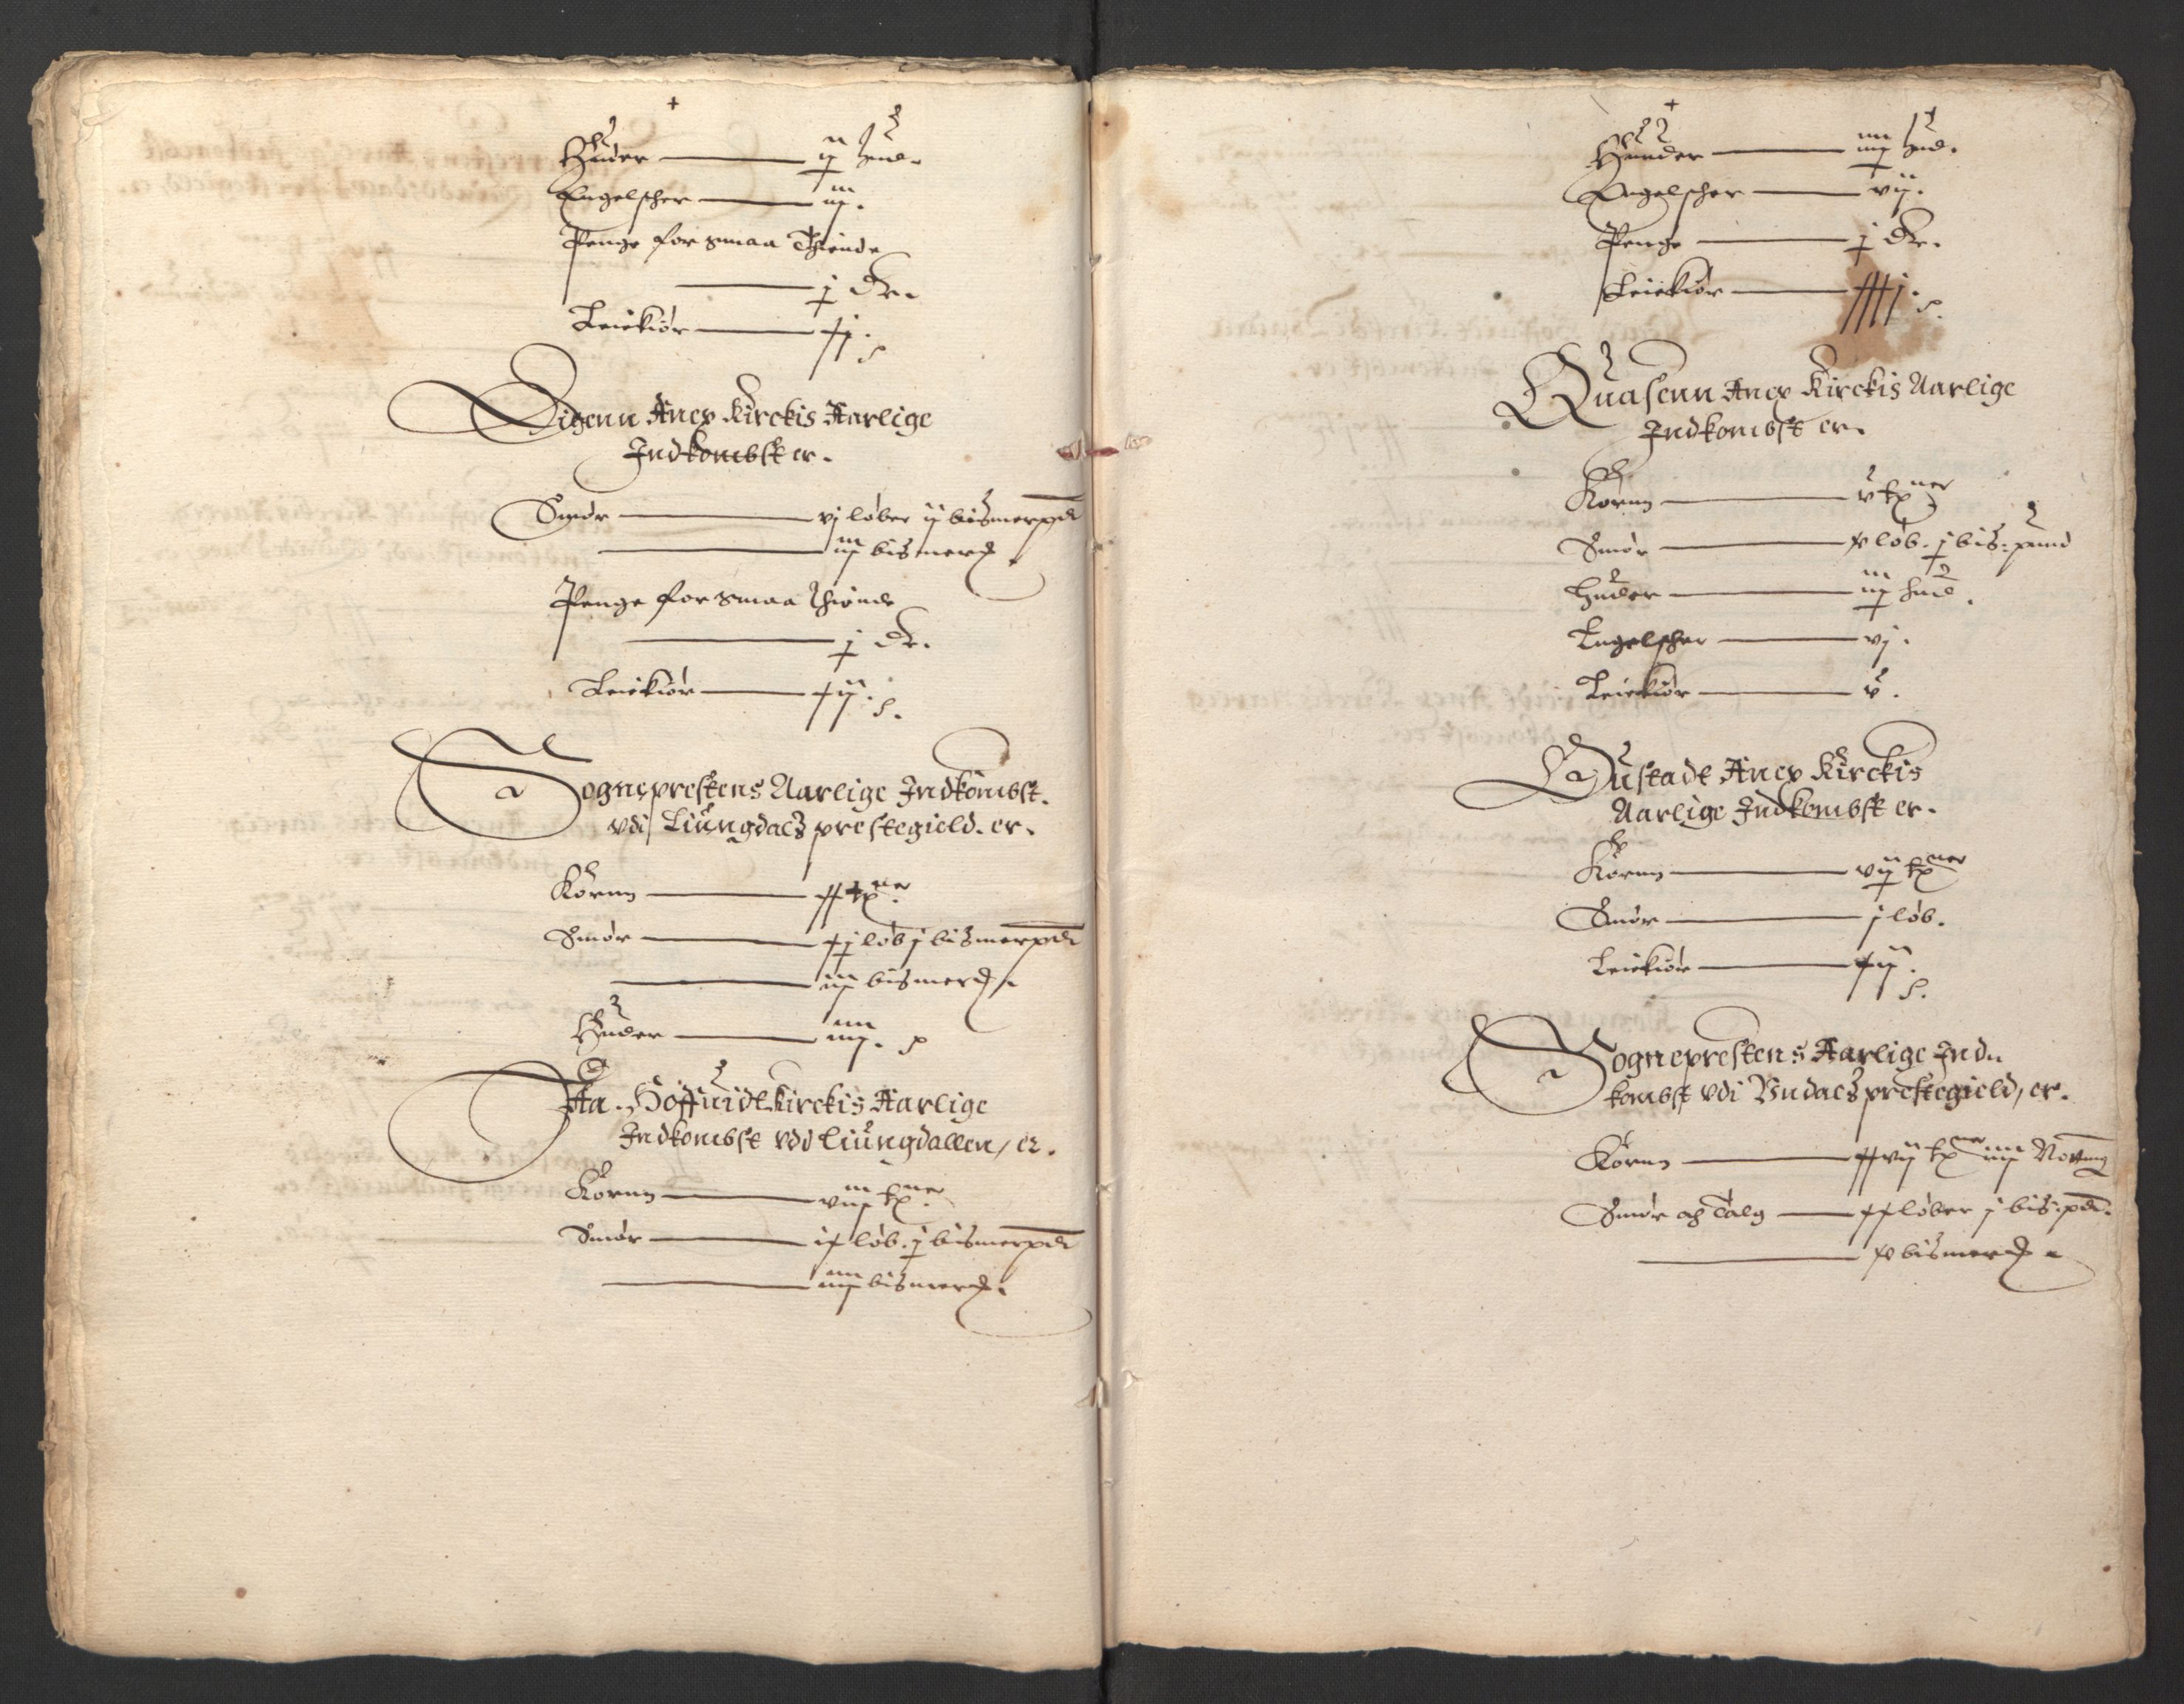 Huder ——— ij hud.
Engelscher ——— iij.
Penge for smaa Thiende
——— j Dr.
Leiekiør ——— xj. s.
Eigenn Anex Kirckis Aarlige
Indkombst er.
Smør ——— vj løber ij bismerpd
——— iij bismer
Penge for smaa thiende
——— j Dr.
Leiekiør ——— xij. s.
Sogneprestens Aarlige Indkombst.
vdi Liungdals prestegield. er.
Kornn ——— xx tner.
Smør ——— xj løb j bismerpd
——— iij bismer
Huder ——— iiij. s
Aa. Hoffuidt Kirckis Aarlige
Indkombst vdi Liungdallen, er.
Kornn ——— viij tner.
Smør ——— ix løb. j bismerpd
——— iiij bismer
Hunder ——— iiij hud.
Engelscher ——— vij.
Penge ——— j Dr.
Leiekiør ——— xxxj. s.
Quasenn Anex Kirckis Aarlige
Indkombst er.
Kornn ——— v tner
Smør ——— x løb. j bis: pund
Huder ——— iij hud.
Engelscher ——— vj.
Leiekiør ——— v.
Oustadt Anex Kirckis
Aarlige Indkombst er.
Kornn ——— vij tner
Smør ——— j løb.
Leiekiør ——— xij. s.
Sogneprestens Aarlige Ind
kombst vdi Vndals prestegield, er.
Kornn ——— xxvij tner iiij
Smør och Talg ——— xx løber j bis: pd.
——— x bismer